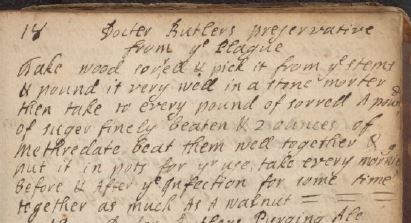 18 Docter Butlers preservative
from yᵉ Plague
Take wood sorrell & pick it from yᵉ stems
& pound it very well in a stone morter &
then take to every pound of sorrell A pound
of suger finely beaten & 2 ounces of
Methredate beat them well together &
put it in pots for yʳ use, take every morning
before & After yᵉ Infection for some time
together as much As A walnut
Butlers Purging Ale